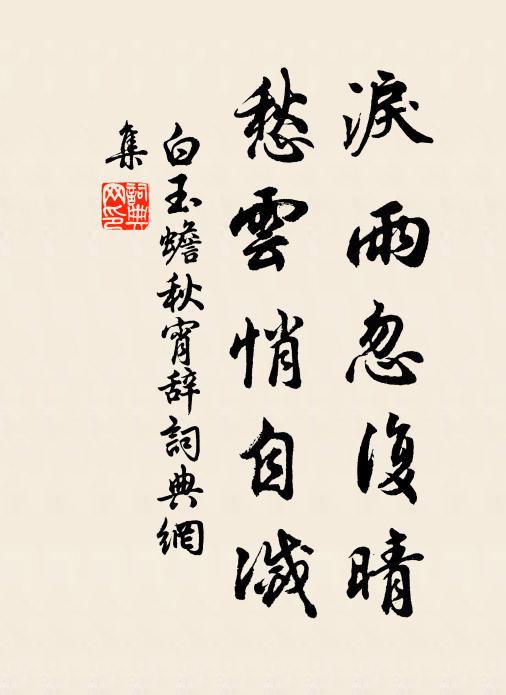 淚雨忽復晴
愁雲悄自滅
白玉蟾秋宵辞詞典網
集
詞典
网印